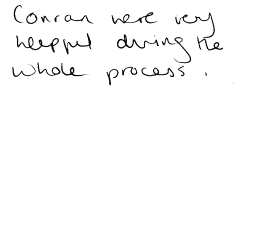 Conran were very
helpful during the
whole process.